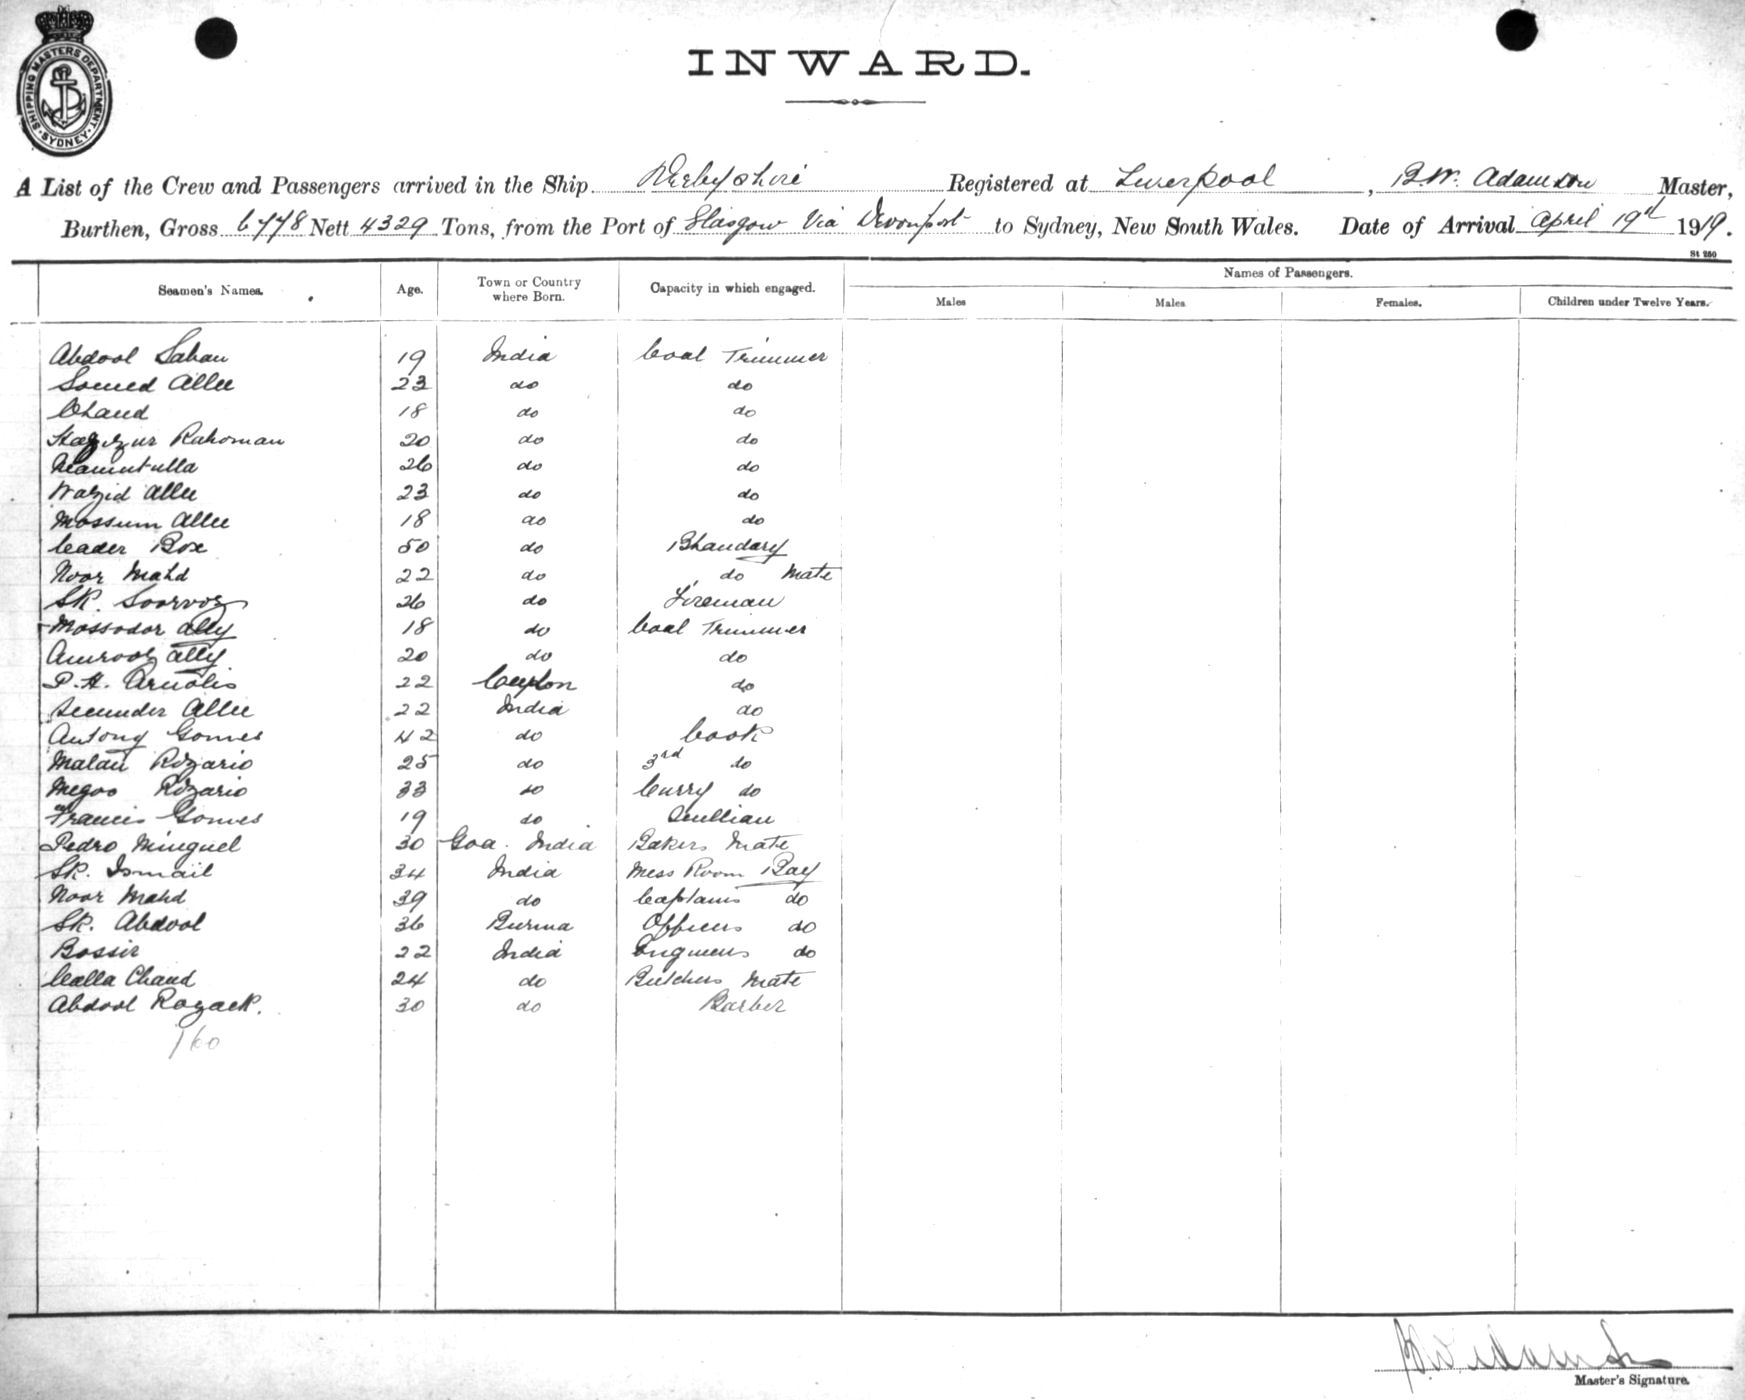 SHIPPING MASTERS DEPARTMENT
SYDNEY
INWARD.
A List of the Crew and Passengers arrived in the Ship Derbyshire Registered at Liverpool, B.W. Adamson Master,
Burthen, Gross 6778 Nett 4329 Tons, from the Port of Glasgow Via Devonport to Sydney, New South Wales. Date of Arrival April 19th 1919.
St 250
Seamen's Names. Age. Town or Country where Born. Capacity in which engaged. Names of Passengers.
Males Males Females. Children under Twelve Years.
Abdool Saban 19 India Coal Trimmer
Somed Allee 23 do do
Chand 18 do do
Rahoman 20 do do
Neamutulla 26 do do
Wazid Allee 23 do do
Mossum Allee 18 do do
Cader Box 50 do Bhandary
Noor Mahd 22 do do Mate
Sk. 26 do Fireman
Mossodor Ally 18 do Coal Trimmer
Ally 20 do do
P. H. Arnolis 22 Ceylon do
Secunder Allee 22 India do
Antony Gomes 42 do Cook
Malau Rozario 25 do 3rd do
Megoo Rozario 33 do Curry do
Francis Gomes 19 do Scullian
Pedro Minguel 30 Goa. India Bakers Mate
Sk. Ismail 34 India Mess Room Boy
Noor Mahd 39 do Captains do
Sk. Abdool 36 Burma Officers do
Bossir 22 India Engineers do
Calla Chand 24 do Butchers Mate
Abdool Rozack. 30 do Barber
160
Master's Signature.